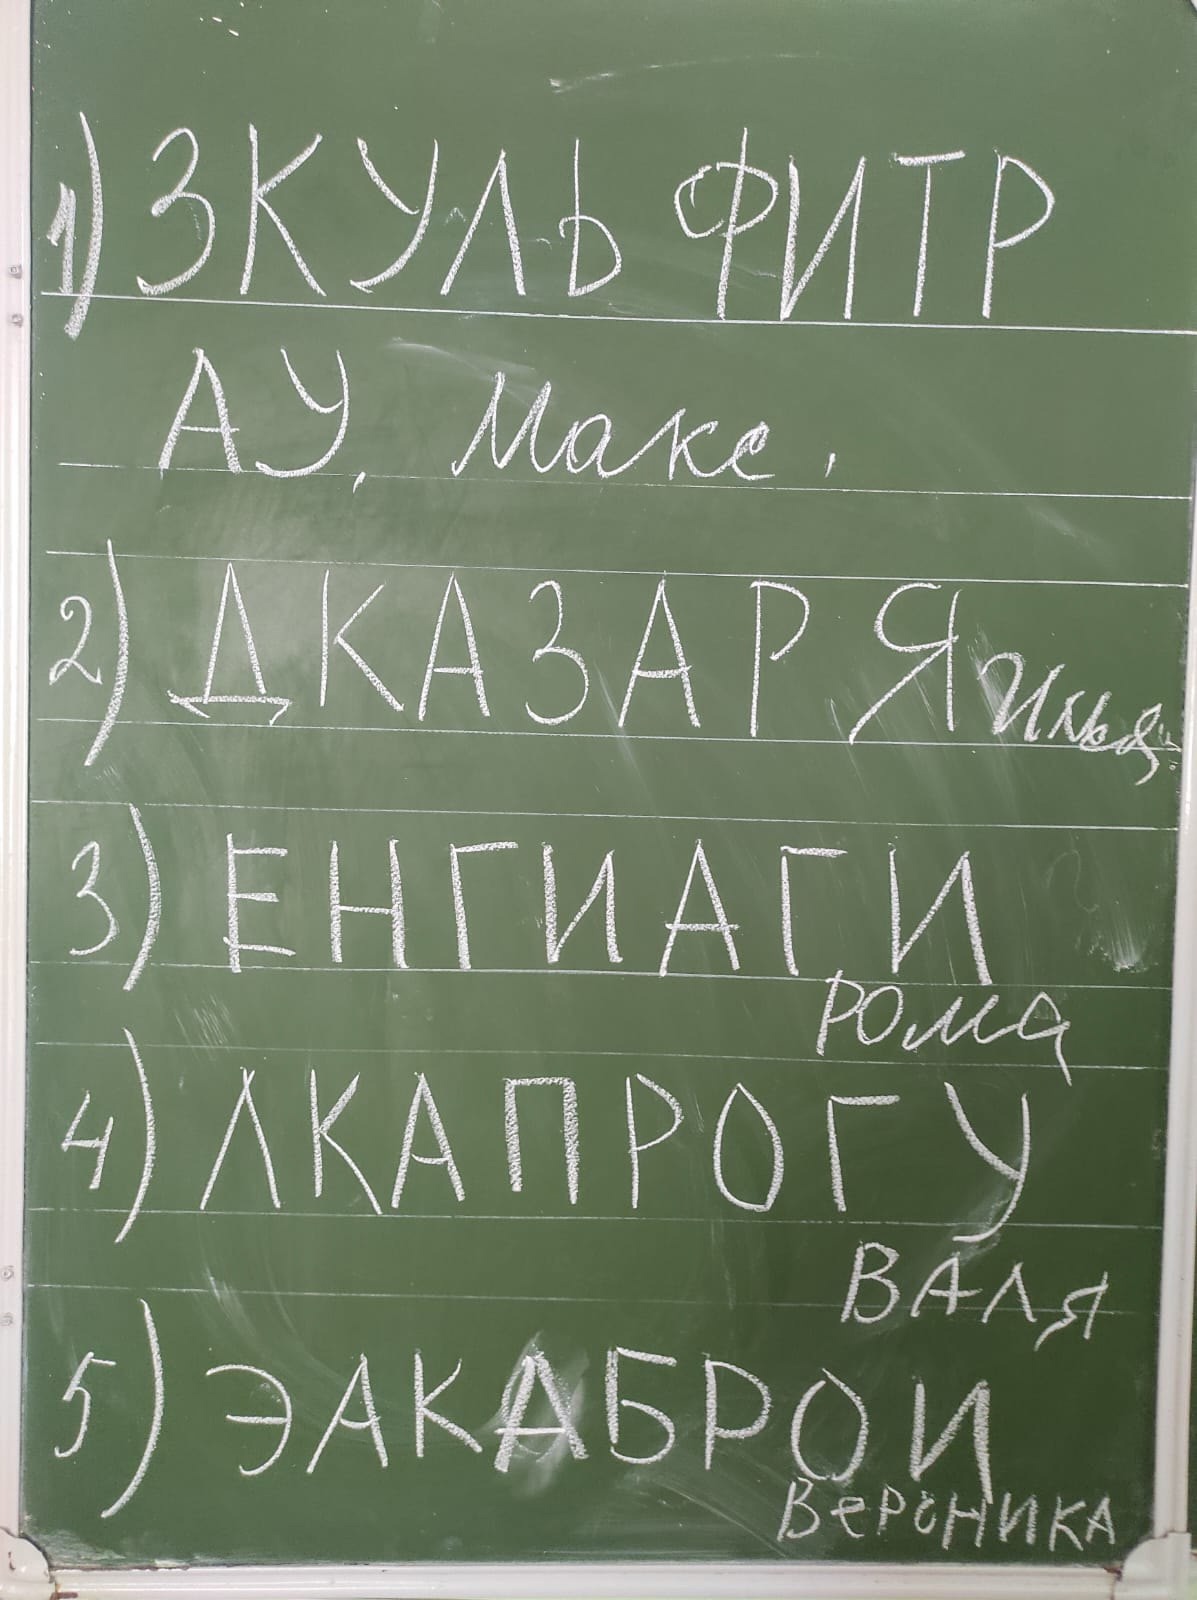 1) ЗКУЛЬ ФИТР
АУ, Макс.
2) ДКАЗАРЯ Илья
3) ЕНГИАГИ
Рома
4) ЛКАПРОГУ
ВАЛЯ
5) ЭАКАБРОИ
Вероника